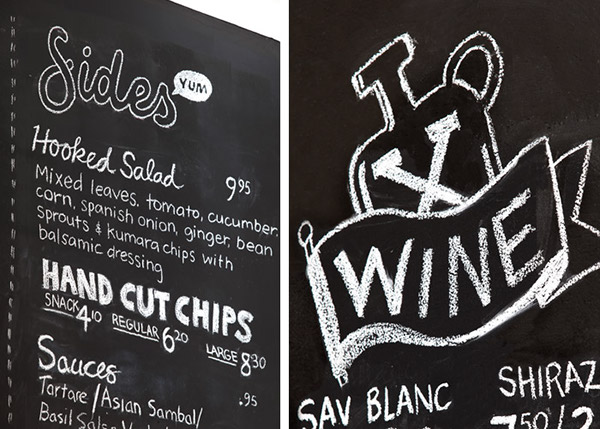 Sides
YUM
Hooked Salad 9.95
Mixed leaves, tomato, cucumber,
corn, spanish onion, ginger, bean
sprouts & kumara chips with
balsamic dressing
HAND CUT CHIPS
SNACK 4.10 REGULAR 6.20 LARGE 8.30
Sauces
Tartare/Asian Sambal/ .95
Basil
X
WINE
SAV BLANC SHIRAZ
7.50/2